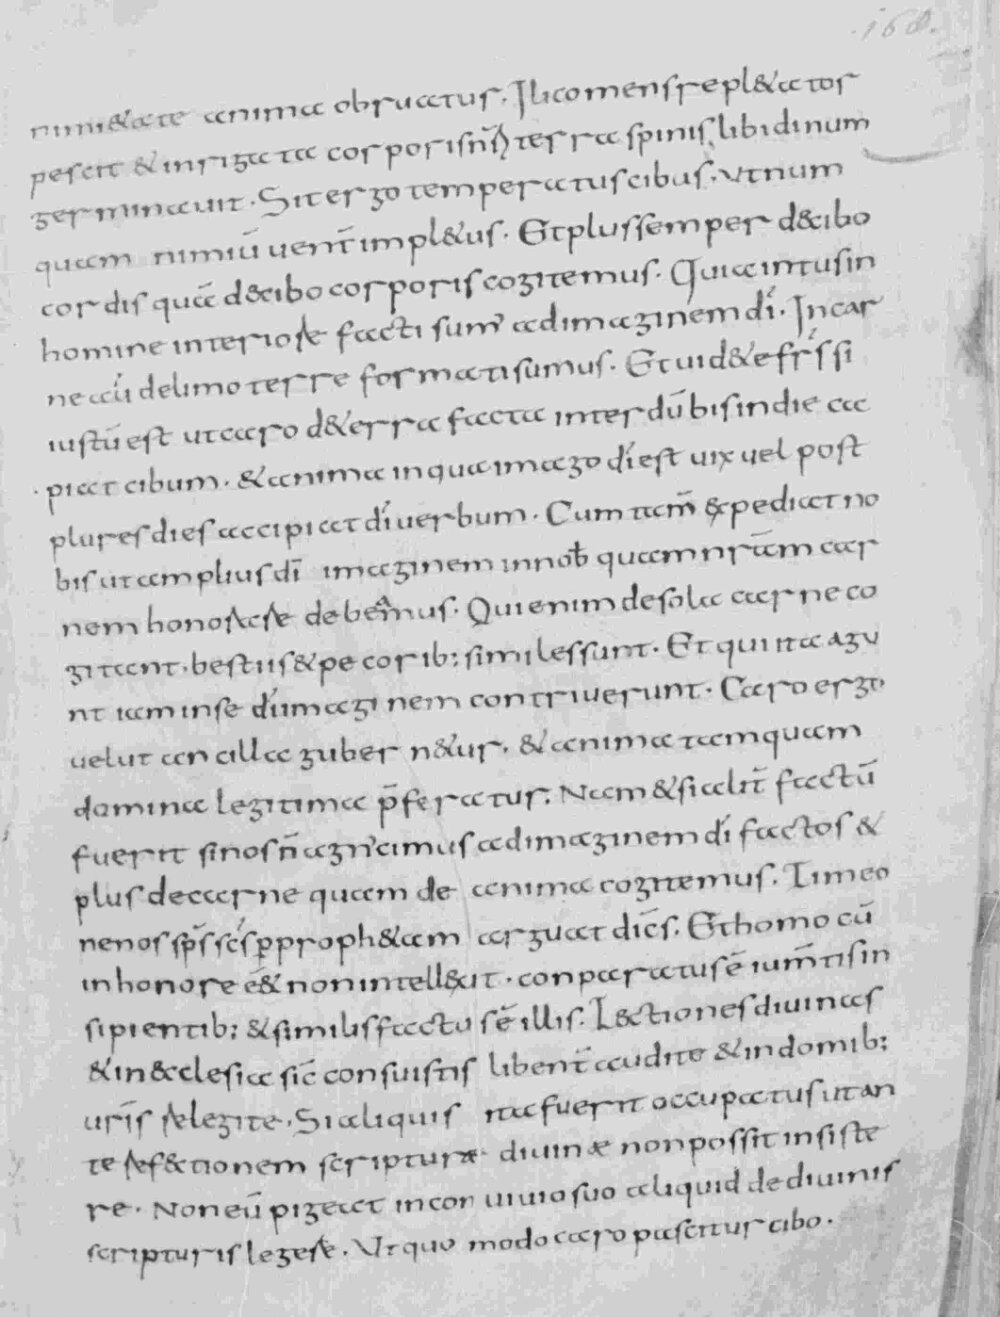 ·168·
nimi&ate anima obruatus. Ilico mens repl&a tor
pescit & inrigata corporis n̄ terra spinis libidinum
germinauit. Sit ergo temperatus cibus. Vt num
quam nimiū uent̄ impl&us. Et plus semper d&cibo
cordis quā d&cibo corporis cogitemus. Quia intus in
homine interiore facti sum' ad imaginem dī. In car
ne aū de limo terre formati sumus. Et uid&e fr̄s si
iustū est ut caro d&erra facta inter dū bis in die ac
cipiat cibum. & anima in qua imago dī est uix uel post
plures dies accipiat dī uerbum. Cum tam̄ expediat no
bis ut amplius dī imaginem in nob quam nr̄am car
nem honorare debem̂us. Qui enim de sola carne co
gitant. bestiis & pecorib; similes sunt. Et qui ita agu
nt iam in se dī imaginem contriuerunt. Caro ergo
uelut ancilla guber n&ur. & anima tamquam
domina legitima p̄feratur. Nam & si alit̄ factū
fuerit si nos n̄ agn'cimus ad imaginem dī factos &
plus de carne quam de anima cogitemus. Timeo
ne nos sp̄s sc̄s p proph&am arguat dic̄s. Et homo cū
in honore ē& non intell&it. conparatus ē ium̄tis in
sipientib; & similis factus ē illis. Lectiones diuinas
& in &clesia sic̄ consuistis libent̄ audite & in domib;
ur̄is relegite. Si aliquis ita fuerit occupatus ut an
te ref&tionem scripturæ diuinæ non possit insiste
re. Non eū pigeat in conuiuio suo aliquid de diuinis
scripturis legere. Vt quo modo caro pascitur cibo.